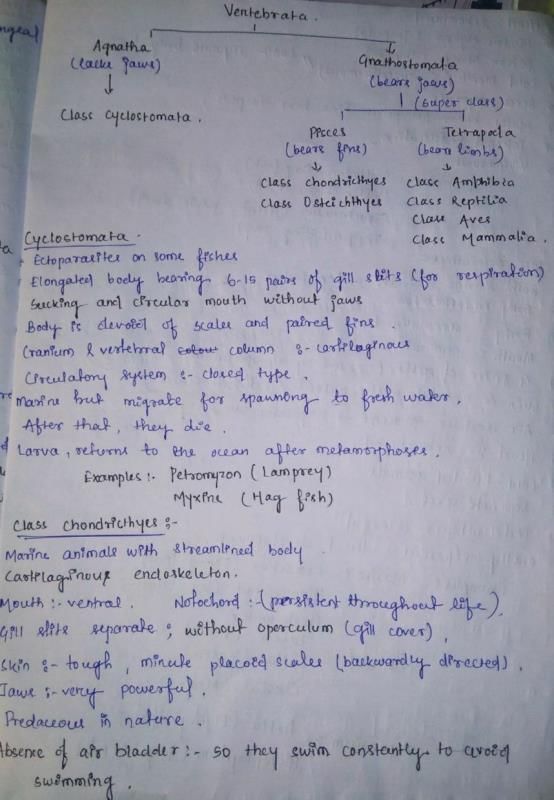 Vertebrata.
Agnatha Gnathostomata
(lacks jaws) (bears jaws)
(super class)
Class Cyclostomata.
Pisces Tetrapoda
(bears fins) (bears limbs)
Class Chondricthyes Class Amphibia
Class Osteichthyes Class Reptilia
Class Aves
Class Mammalia.
Cyclostomata.
Ectoparasites on some fishes
Elongated body bearing 6-15 pairs of gill slits (for respiration)
Sucking and circular mouth without jaws
Body is devoid of scales and paired fins.
Cranium & vertebral column :- cartilaginous
Circulatory system :- closed type.
Marine but migrate for spawning to fresh water.
After that, they die.
Larva, returns to the ocean after metamorphoses.
Examples :- Petromyzon (Lamprey)
Myxine (Hag fish)
Class Chondricthyes :-
Marine animals with streamlined body.
Cartilaginous endoskeleton.
Mouth :- ventral. Notochord : (persistent throughout life),
Gill slits separate ; without operculum (gill cover),
Skin :- tough, minute placoid scales (backwardly directed).
Jaws :- very powerful.
Predaceous in nature.
Absence of air bladder :- so they swim constantly to avoid
swimming.